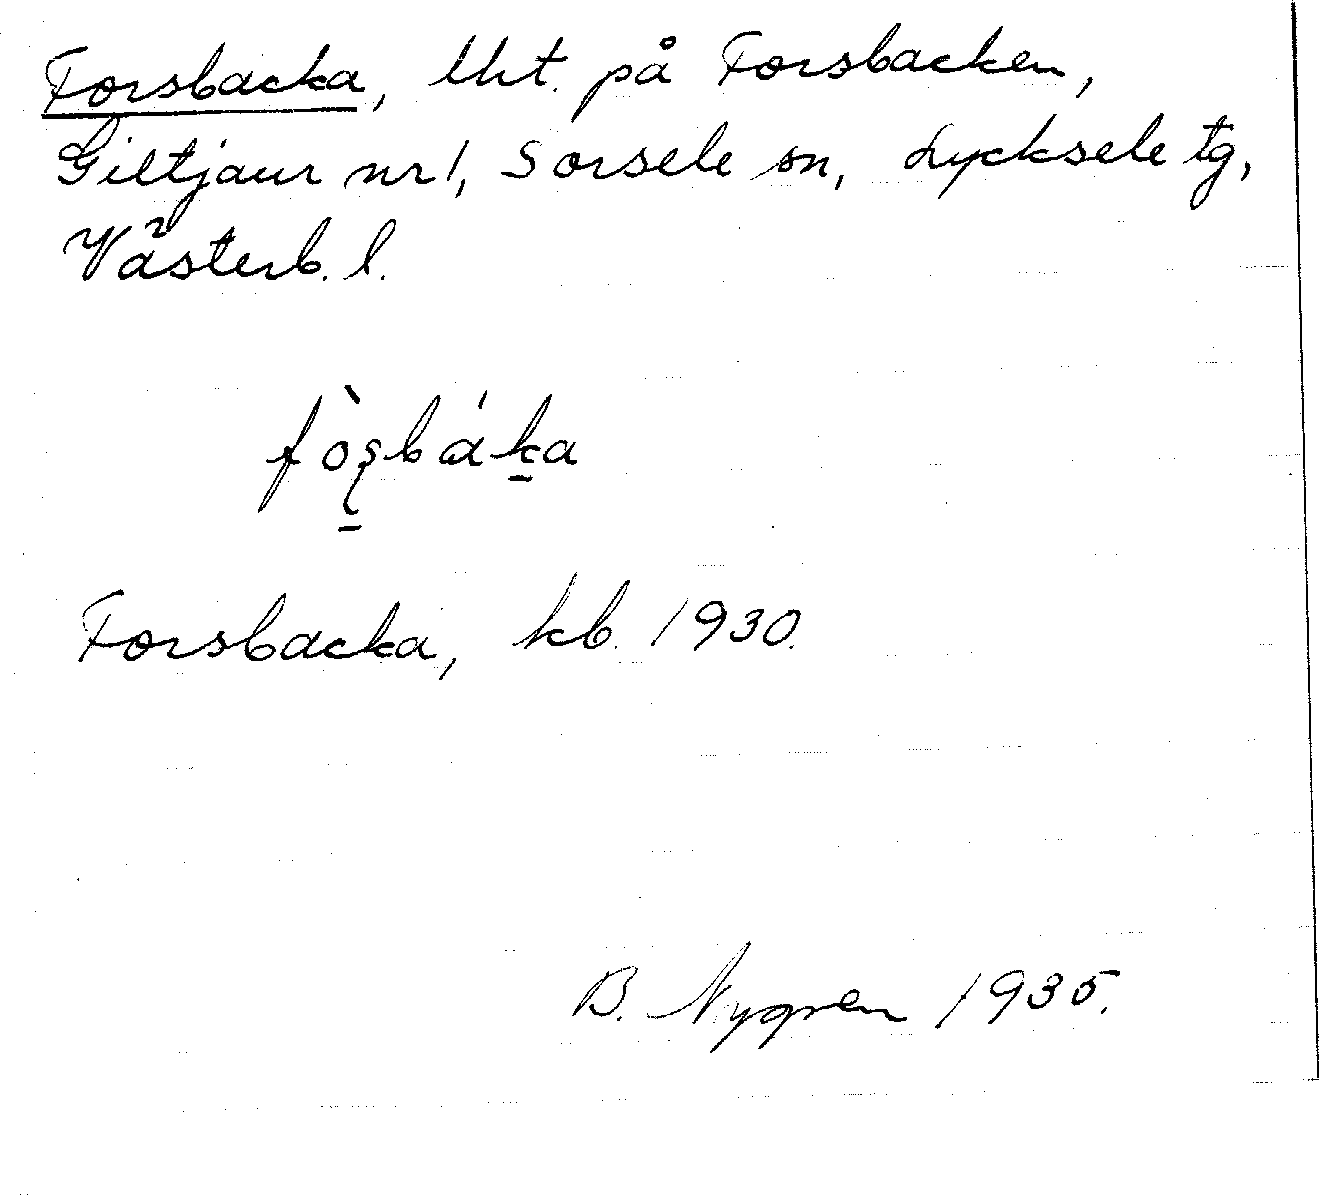 Forsbacka, lht. på Forsbacken,
Giltjaur nr 1, Sorsele sn, Lycksele tg,
Västerb. l.
fòʂbáka
Forsbacka, kb. 1930.
B. Nygren 1935.